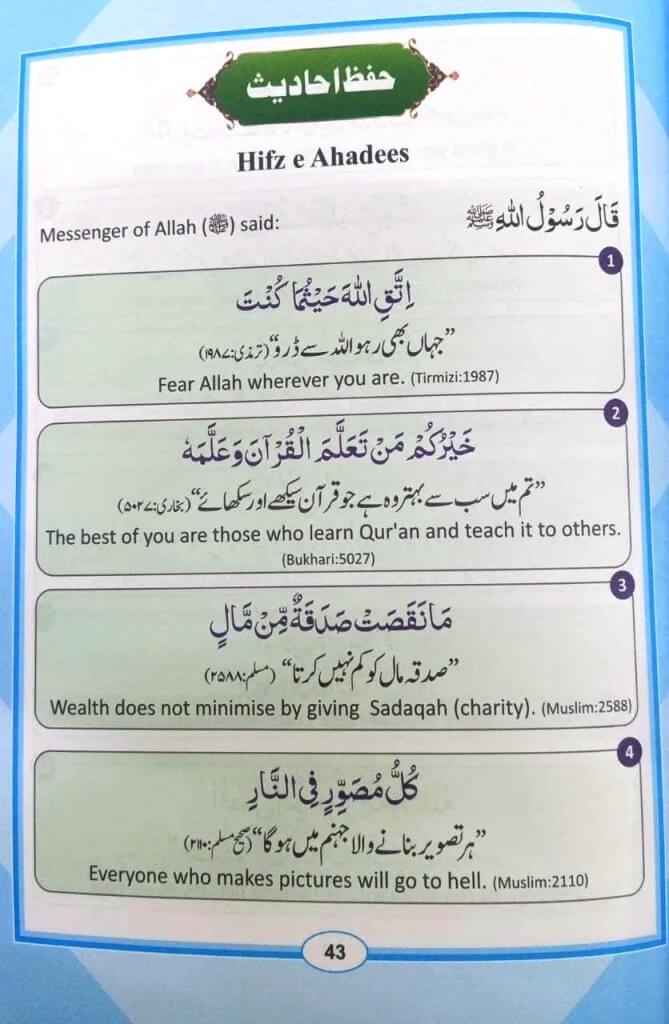 حفظ احادیث
Hifz e Ahadees
Messenger of Allah (ﷺ) said:
قَالَ رَسُوْلُ اللّٰهِ ﷺ
1
اِتَّقِ اللّٰهَ حَيْثُمَا كُنْتَ
”جہاں بھی رہو اللہ سے ڈرو“ (ترمذی:۱۹۸۷)
Fear Allah wherever you are. (Tirmizi:1987)
2
خَيْرُكُمْ مَنْ تَعَلَّمَ الْقُرْآنَ وَعَلَّمَهٗ
”تم میں سب سے بہتر وہ ہے جو قرآن سیکھے اور سکھائے“ (بخاری:۵۰۲۷)
The best of you are those who learn Qur'an and teach it to others.
(Bukhari:5027)
3
مَا نَقَصَتْ صَدَقَةٌ مِّنْ مَّالٍ
”صدقہ مال کو کم نہیں کرتا“ (مسلم:۲۵۸۸)
Wealth does not minimise by giving Sadaqah (charity). (Muslim:2588)
4
كُلُّ مُصَوِّرٍ فِي النَّارِ
”ہر تصویر بنانے والا جہنم میں ہوگا“ (صحیح مسلم:۲۱۱۰)
Everyone who makes pictures will go to hell. (Muslim:2110)
43